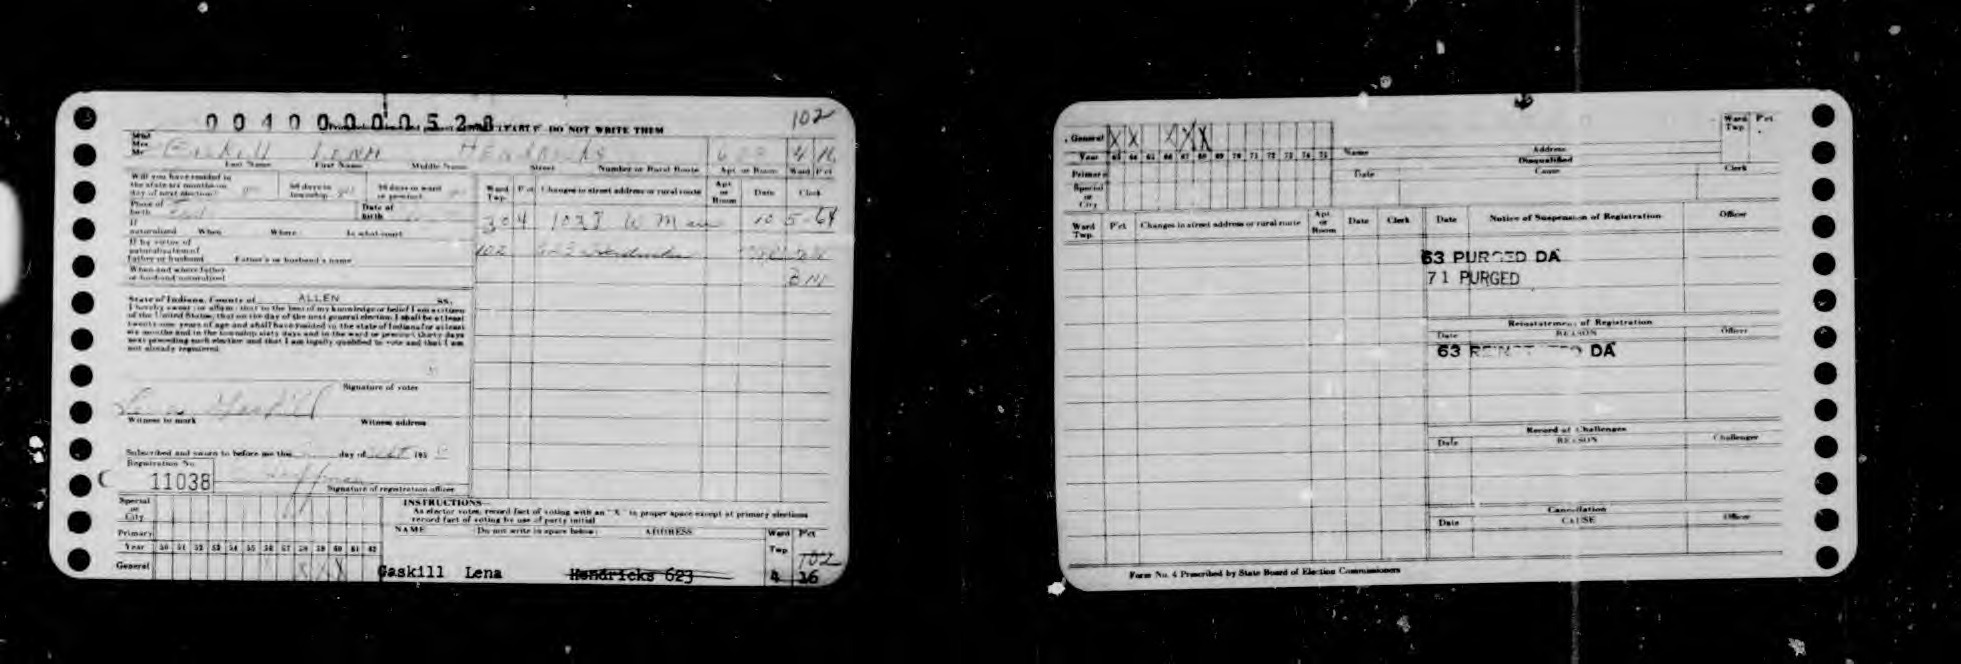 0040000052
DO NOT WRITE THEM
102
Miss
Mrs.
Mr.
Gaskill Lena Hendricks 623 4 16
Last Name First Name Middle Name Street Number or Rural Route Apt. or Room Ward Pct
Will you have resided in
the state six months on
day of next election? yes 60 days in
township yes 30 days in ward
or precinct yes
Ward
Twp. Pct Changes in street address or rural route Apt.
or
Room Date Clerk
Place of
birth Ind Date of
birth
304 1037 W Main 10 5-64
If
naturalized When Where In what court
If by virtue of
naturalization of
father or husband Father's or husband's name
102
When and where father
or husband naturalized
State of Indiana, County of ALLEN ss.
I hereby swear (or affirm) that to the best of my knowledge or belief I am a citizen
of the United States; that on the day of the next general election I shall be at least
twenty-one years of age and shall have resided in the state of Indiana for at least
six months and in the township sixty days and in the ward or precinct thirty days
next preceding such election and that I am legally qualified to vote and that I am
not already registered.
Signature of voter
Lena Gaskill
Witness to mark Witness address
Subscribed and sworn to before me this day of 195
Registration No.
11038
Signature of registration officer
Special
or
City
INSTRUCTIONS
As elector votes, record fact of voting with an "X" in proper space except at primary elections
record fact of voting by use of party initial
Primary
NAME Do not write in space below: ADDRESS Ward
Twp Pct
Year 50 51 52 53 54 55 56 57 58 59 60 61 62
102
General X X X
Gaskill Lena Hendricks 623 4 16
General X X X X X
Year 63 64 65 66 67 68 69 70 71 72 73 74 75
Primary
Special
or
City
Name Address
Ward
Twp. Pct.
Disqualified
Date Cause Clerk
Ward
Twp. Pct Changes in street address or rural route Apt.
or
Room Date Clerk
Date Notice of Suspension of Registration Officer
63 PURGED DA
71 PURGED
Reinstatement of Registration
Date REASON Officer
63 REINSTATED DA
Record of Challenges
Date REASON Challenger
Cancellation
Date CAUSE Officer
Form No. 4 Prescribed by State Board of Election Commissioners